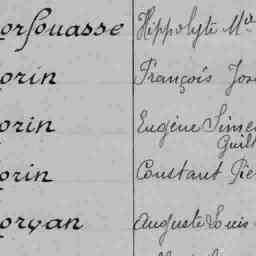 orfouasse Hippolyte Ma
orin François Jos
orin Eugène Sime
Guil
orin Constant Pie
organ Auguste Louis